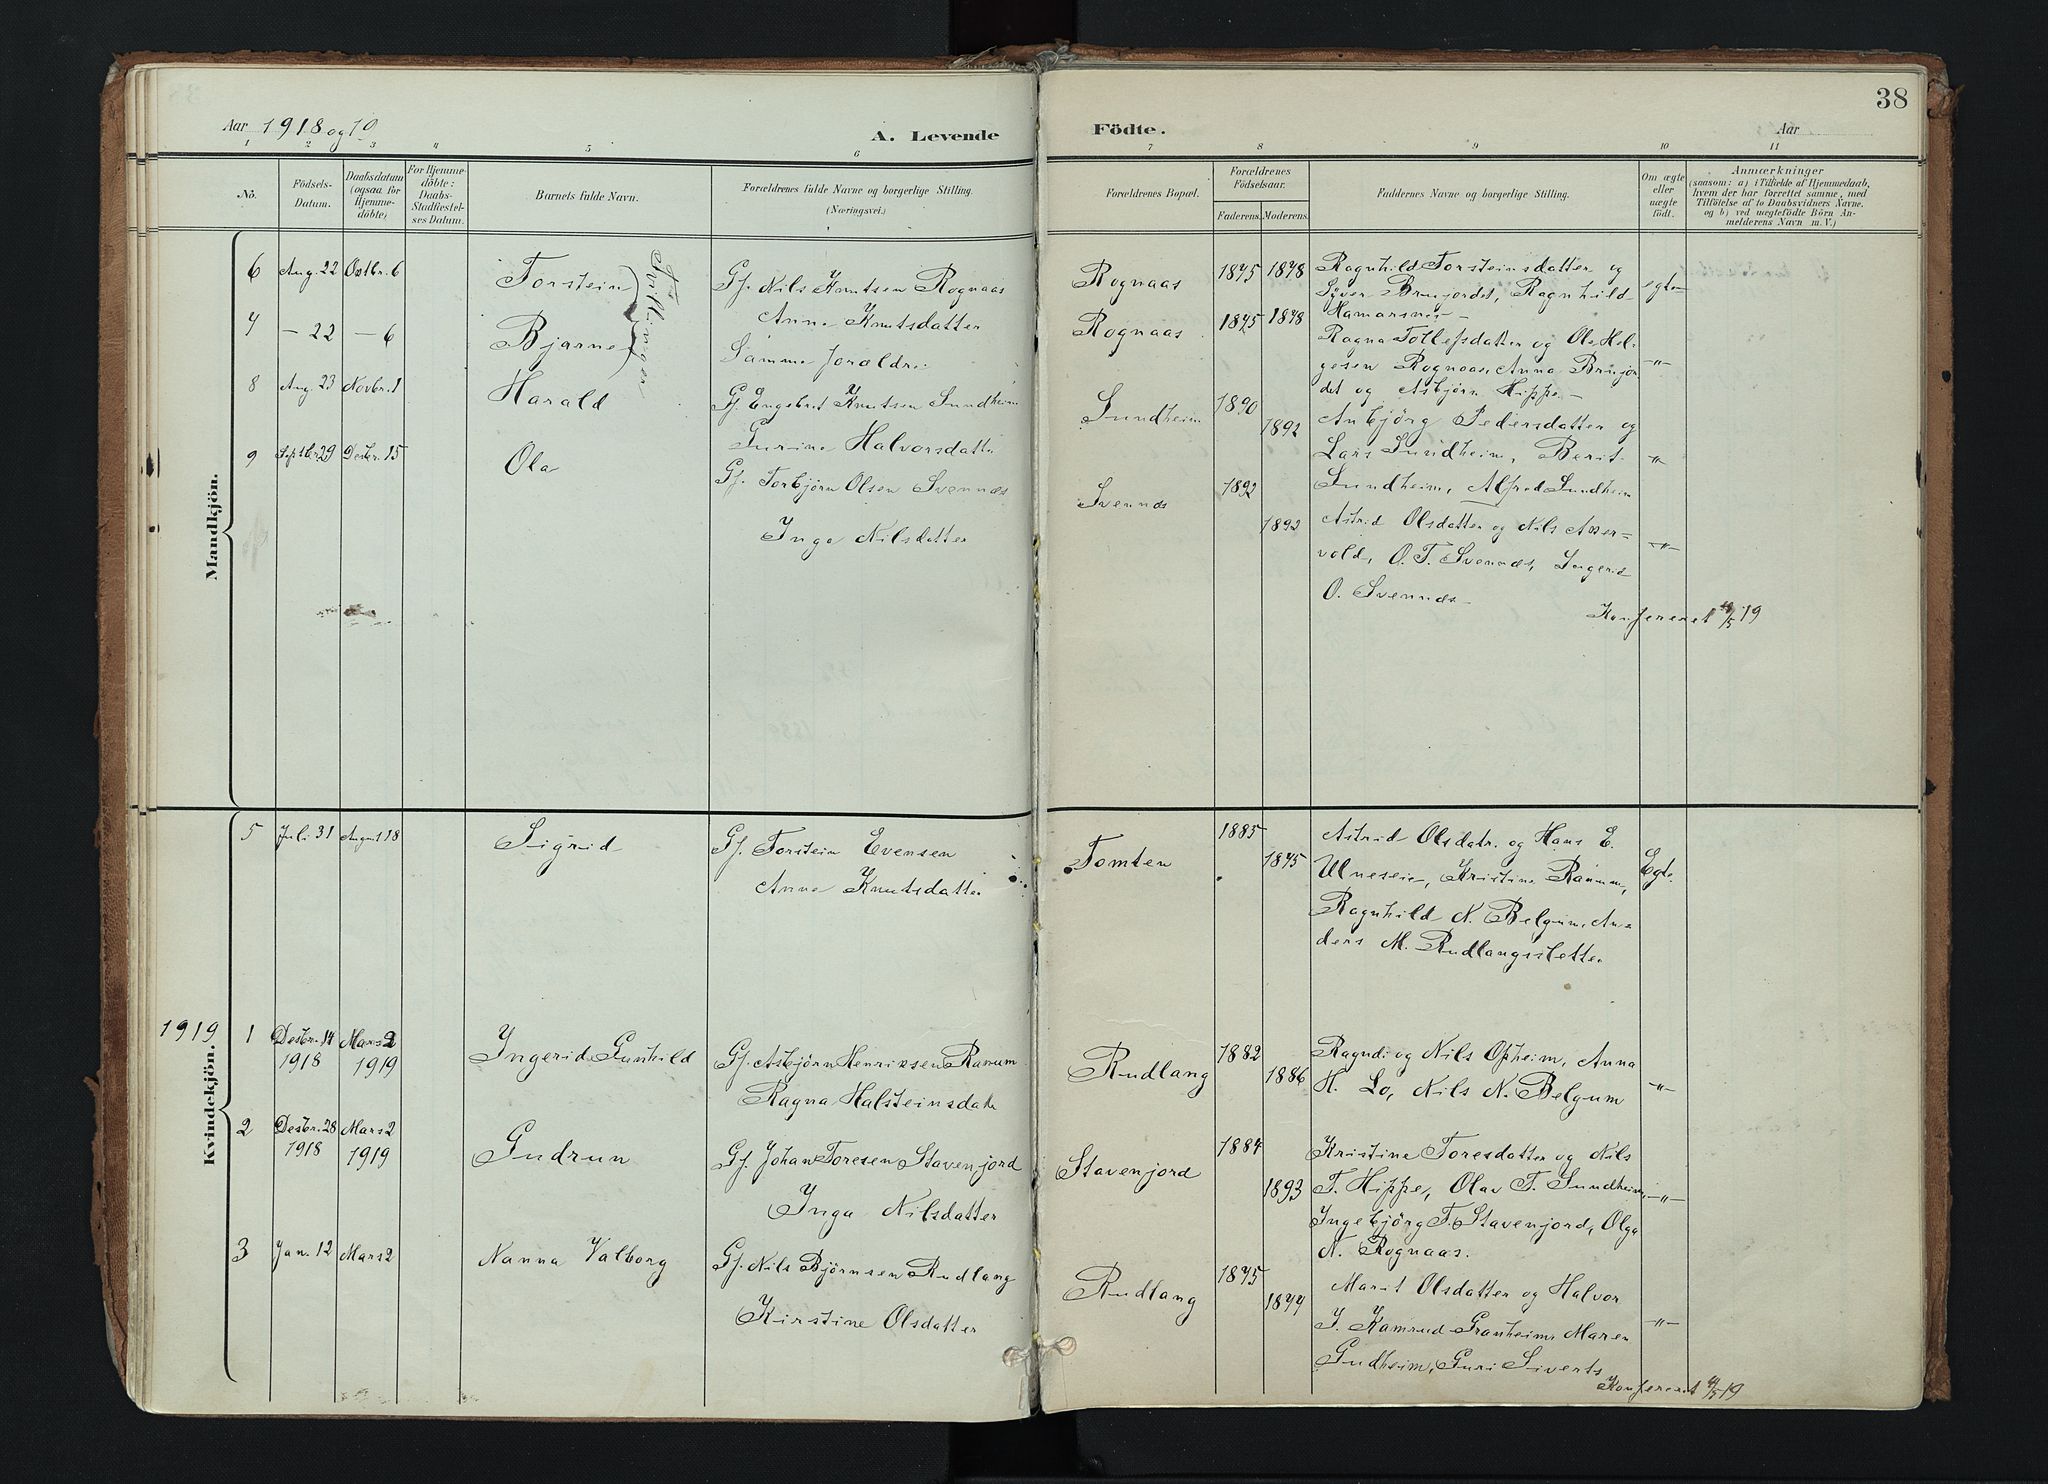 38
Aar 1918 og 19
A. Levende
Födte.
Aar
1 2 3 4 5 6 7 8 9 10 11
No.
Födsels-
Datum.
Daabsdatum
(ogsaa for
Hjemme-
döbte)
For Hjemme-
döbte:
Daabs-
Stadfæstel-
ses Datum.
Barnets fulde Navn.
Forældrenes fulde Navne og borgerlige Stilling.
(Næringsvei.)
Forældrenes Bopæl.
Forældrenes
Födselsaar.
Faderens.
Moderens.
Faddernes Navne og borgerlige Stilling.
Om ægte
eller
uægte
födt.
Anmærkninger
(saasom: a) i Tilfælde af Hjemmedaab,
hvem der har forrettet samme, med
Tilföielse af to Daabsvidners Navne.
og b) ved uægtefödte Börn An-
melderens Navn m. V.)
Mandkjön.
6 Aug. 22 Octbr. 6 Torstein
Tvillinger
Gf. Nils Knutsen Rognaas
Anne Knutsdatter
Rognaas 1875 1878
Ragnhild Torsteinsdatter og
Syver Brujordet, Ragnhild
Hamarsnes
egte
7 — 22 — 6 Bjarne
Samme Foraldre
Rognaas 1875 1878
Ragna Tollefsdatter og Ole Hel-
gesen Rognaas, Anna Brujor
det og Asbjørn Hippe
—"—
8 Aug. 23 Novbr. 1 Harald
Gf. Engebret Knutsen Sundheim
Gurine Halvorsdatter
Sundheim 1890 1892
Anbjörg Pedersdatter og
Lars Sundheim, Berit
Sundheim, Alfred Sundheim
—"—
9 Septbr 29 Desbr. 15 Ola
Gf. Torbjørn Olsen Svennæs
Inga Nilsdatter
Svennæs 1892 1892
Astrid Olsdatter og Nils Aaser-
vold, O. T. Svennæs, Ingerid
O. Svennæs
—"—
Konfereret /5 19
Kvindekjön.
5 Juli 31 August 18 Sigrid
Gf. Torstein Evensen
Anne Knutsdatter
Tomten 1885 1875
Astrid Olsdatr. og Hans E.
Ulneseie, Kristine Ranum,
Ragnhild N. Belgum, An-
ders M. Rudlangsletten
Egte.
1919
1 Desbr. 14 1918 Mars 2 1919 Ingerid Gunhild
Gf. Asbjørn Henriksen Ranum
Ragna Halsteinsdatter
Rudlang 1882 1886
Ragndi og Nils Opheim, Anna
H. Lo, Nils N. Belgum
—"—
2 Desbr. 28 1918 Mars 2 1919 Gudrun
Gf. Johan Toresen Stavenjord
Inga Nilsdatter
Stavenjord 1884 1893
Kristine Toresdatter og Nils
T. Hippe, Olav T. Sundheim,
Ingebjörg T. Stavenjord, Olga
N. Rognaas.
—"—
3 Jan. 12 Mars 2 Nanna Valborg
Gf. Nils Bjørnsen Rudlang
Kirstine Olsdatter
Rudlang 1875 1877
Marit Olsdatter og Halvor
J. Kamrud Granheim, Maren
Gudheim, Guri Siverts
—"—
Konfereret /5 19